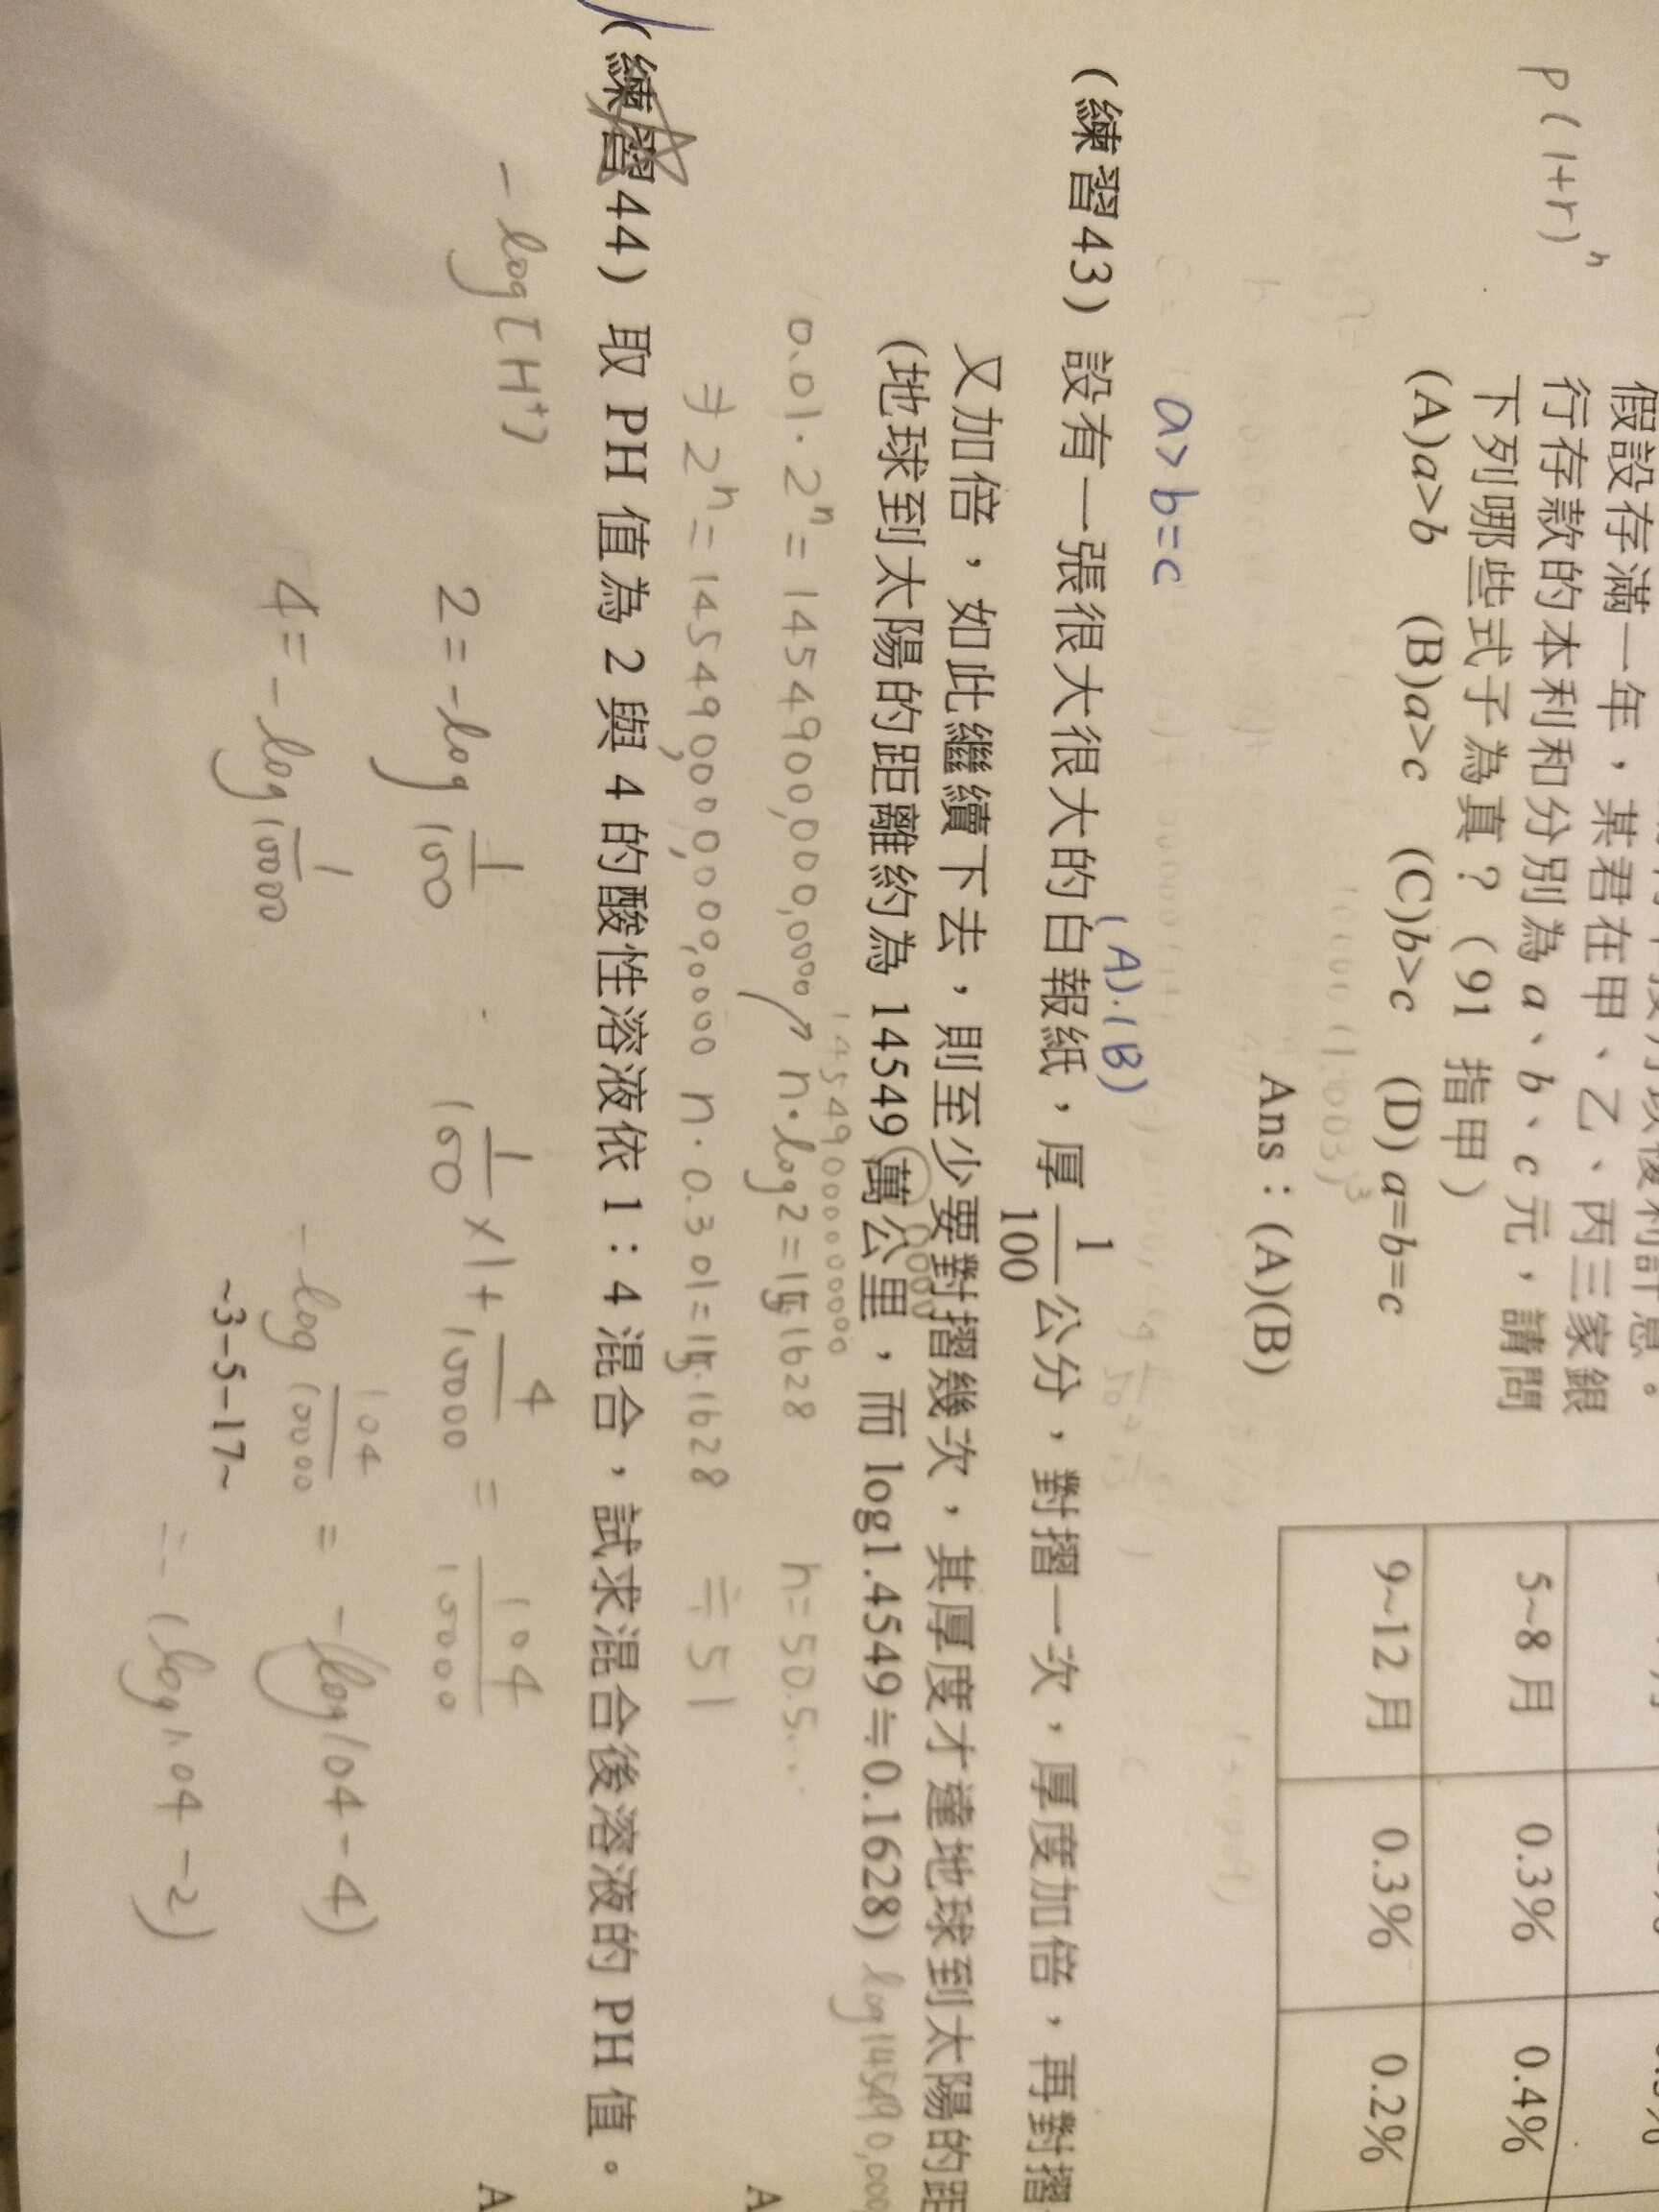 P(1+r)ⁿ
假設存滿一年，某君在甲、乙、丙三家銀
行存款的本利和分別為 a、b、c 元，請問
下列哪些式子為真？（91 指甲）
(A)a>b (B)a>c (C)b>c (D) a=b=c
Ans：(A)(B)
5~8 月 0.3% 0.4%
9~12 月 0.3% 0.2%
a>b=c
(A).(B)
（練習43）設有一張很大很大很大的白報紙，厚 1/100 公分，對摺一次，厚度加倍，再對摺
又加倍，如此繼續下去，則至少要對摺幾次，其厚度才達地球到太陽的距
(地球到太陽的距離約為 14549 萬公里，而 log1.4549≒0.1628)
0.01·2ⁿ=
n·log2=
n=50.5...
2ⁿ=
n·0.301=
≒51
（練習44）取 PH 值為 2 與 4 的酸性溶液依 1：4 混合，試求混合後溶液的 PH 值。
-log[H⁺]
2=-log 1/100
1/100 ×1+ 4/10000 = 104/10000
4=-log 1/10000
-log 104/10000 = -(log104-4)
=-(log1.04-2)
~3-5-17~